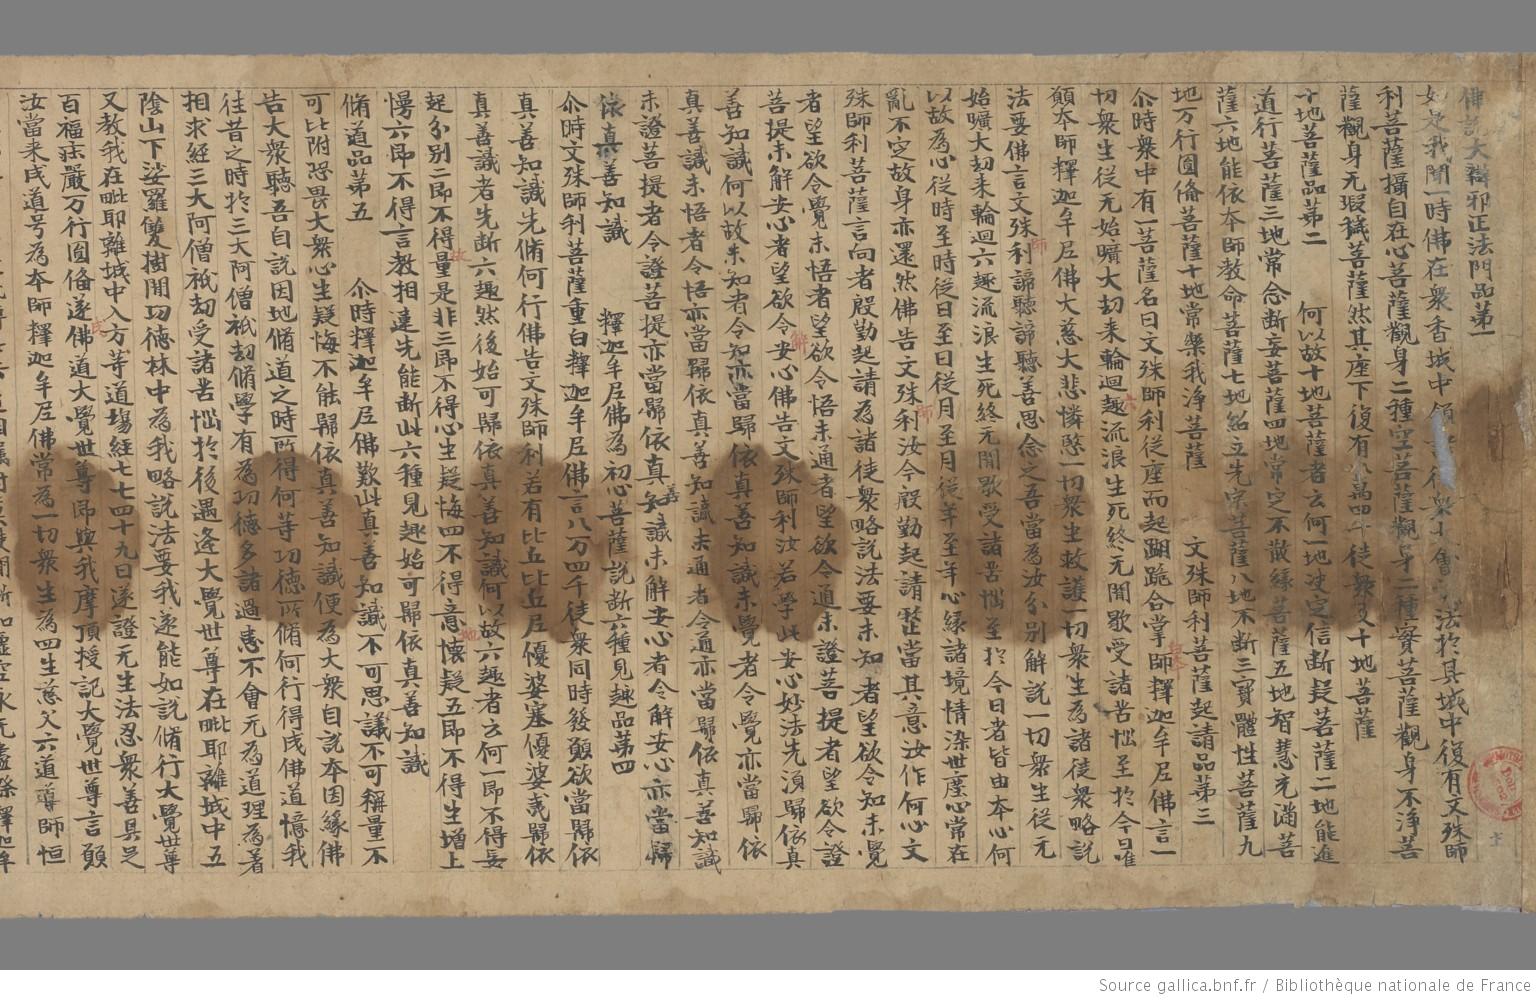 佛說大辯邪正法門品第一
如是我聞一時佛在衆香城中 衆 會 法於其城中復有文殊師
利菩薩攝自在心菩薩觀身二種空菩薩觀身二種寂菩薩觀身不淨菩
薩觀身无瑕穢菩薩然其座下復有八萬四千徒衆及十地菩薩
十地菩薩品苐二 何以故十地菩薩者云何一地决定信斷疑菩薩二地能進
道行菩薩三地常念斷妄菩薩四地常定不散緣菩薩五地智慧充滿菩
薩六地能依本師教命菩薩七地紹立先宗菩薩八地不斷三寶體性菩薩九
地万行圓俻菩薩十地常樂我淨菩薩 文殊師利菩薩起請品苐三
尒時衆中有一菩薩名曰文殊師利從座而起蹦跪合掌師釋迦牟尼佛言一
切衆生從无始曠大劫来輪迴趣流浪生死終无閒歇受諸苦惱至於今日唯
願本師釋迦牟尼佛大慈大悲憐愍一切衆生救護一切衆生為諸徒衆略說
法要佛言文殊利諦聽諦聽善思念之吾當為汝分別解說一切衆生從无
始曠大劫来輪迴六趣流浪生死終无閒歇受諸苦惱至於今日者皆由本心何
以故為心從時至時從日至日從月至月從年至年心緣諸境情染世塵心常在
亂不定故身亦還然佛告文殊利汝今殷勤起請整當其意汝作何心文
殊師利菩薩言向者殷勤起請為諸徒衆略說法要未知者望欲令知未覺
者望欲令覺未悟者望欲令悟未通者望欲令通未證菩提者望欲令證
菩提未解安心者望欲令安心佛告文殊師利汝若學此安心妙法先須歸依真
善知識何以故未知者令知亦當歸依真善知識未覺者令覺亦當歸依
真善識未悟者令悟亦當歸依真善知識未通者令通亦當歸依真善知識
未證菩提者令證菩提亦當歸依真善知識未解安心者令解安心亦當歸
依真善知識 釋迦牟尼佛為初心菩薩說斷六種見趣品苐四
尒時文殊師利菩薩重白釋迦牟尼佛言八万四千徒衆同時發願欲當歸依
真善知識先俻何行佛告文殊師利若有比丘比丘尼優婆塞優婆夷歸依
真善識者先斷六趣然後始可歸依真善知識何以故六趣者云何一即不得妄
起分別二即不得量是非三即不得心生疑悔四不得意懷疑五即不得生增上
慢六即不得言教相違先能斷此六種見趣始可歸依真善知識
脩道品苐五 尒時釋迦牟尼佛歎此真善知識不可思議不可稱量不
可比附恐畏大衆心生疑悔不能歸依真善知識便為大衆自說本因緣佛
告大衆聽吾自說因地脩道之時所得何等功德所脩何行得成佛道憶我
往昔之時於三大阿僧祇劫脩學有為功德多諸過患不會无為道理為著
相求經三大阿僧祇劫受諸苦惱於後遇逢大覺世尊在毗耶離城中五
陰山下娑羅雙樹閒功德林中為我略說法要我遂能如說脩行大覺世尊
又教我在毗耶離城中入方等道塲經七七四十九日遂證无生法忍衆善具足
百福莊嚴万行圓俻遂佛道大覺世尊即與我摩頂授記大覺世尊言願
汝當来成道号為本師釋迦牟尼佛常為一切衆生為四生慈父六道導師恒
Source gallica.bnf.fr / Bibliothèque nationale de France